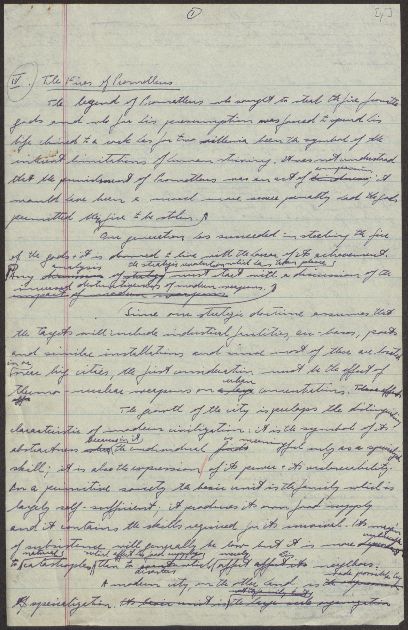 1
[4]
IV. The Fires of Prometheus
The legend of Prometheus who sought to steal the fire from the
gods and who for his presumption was forced to spend his
life chained to a rock has for two millenia been the symbol of the
inherent limitations of human striving. It was not understood
compassion
that the punishment of Prometheus was an act of: it
would have been a much more severe penalty had the gods
permitted the fire to be stolen.
Our generation has succeeded in stealing the fire
of the gods & it is doomed to live with the horror of its achievement.
analysis the strategic revolution which has taken place
Any must start with a discussion of the
increased destructiveness of modern weapons.
Since our strategic doctrine assumes that
the targets will include industrial facilities, air-bases, ports
and similar installations and since most of these are located
in or
near big cities, the first consideration must be the effect of
urban
thermo-nuclear weapons on concentrations.
The growth of the city is perhaps the distinguishing
characteristic of modern civilization: it is the symbol of its
because in it is meaningful
abstractness the individual only as a specialized
skill; it is also the expression of its power & its vulnerability.
In a primitive society the basic unit is the family which is
largely self-sufficient; it produces its own food supply
and it contains the skills required for its survival. Its margin
of subsistence will generally be low but it is more
natural which affect the food supply
to catastrophes than to affect its neighbors.
made possible by
A modern city, on the other hand is
specialization.